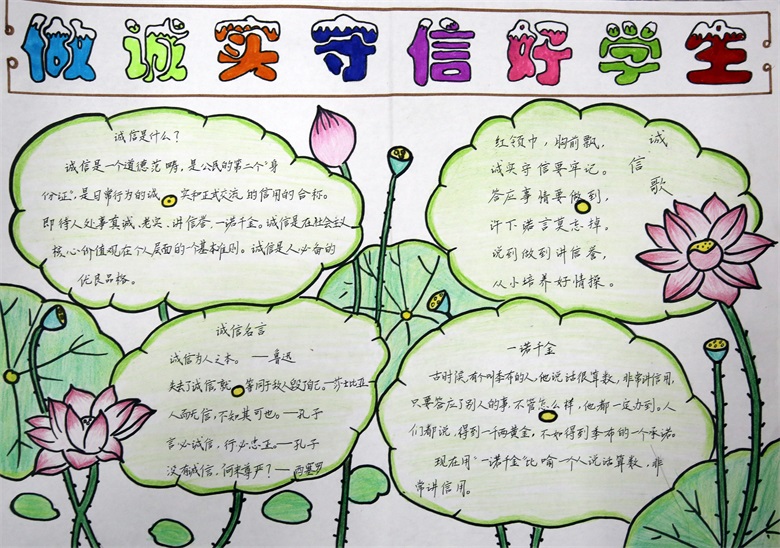 做诚实守信好学生
诚信是什么？
诚信是一个道德范畴，是公民的第二个“身
份证”，是日常行为的诚实和正式交流的信用的合称。
即待人处事真诚、老实、讲信誉，一诺千金。诚信是在社会主义
核心价值观在个人层面的一个基本准则。诚信是人必备的
优良品格。
诚信歌
红领巾，胸前飘，
诚实守信要牢记。
答应事情要做到，
许下诺言莫忘掉。
说到做到讲信誉，
从小培养好情操。
诚信名言
诚信为人之本。——鲁迅
失去了诚信，就等同于敌人毁了自己。——莎士比亚
人而无信，不知其可也。——孔子
言必诚信，行必忠正。——孔子
没有诚信，何来尊严？——西塞罗
一诺千金
古时候，有个叫季布的人，他说话很算数，非常讲信用，
只要答应了别人的事，不管怎么样，他都一定办到。人
们都说，得到一千两黄金，不如得到季布的一个承诺。
现在用“一诺千金”比喻一个人说话算数，非
常讲信用。